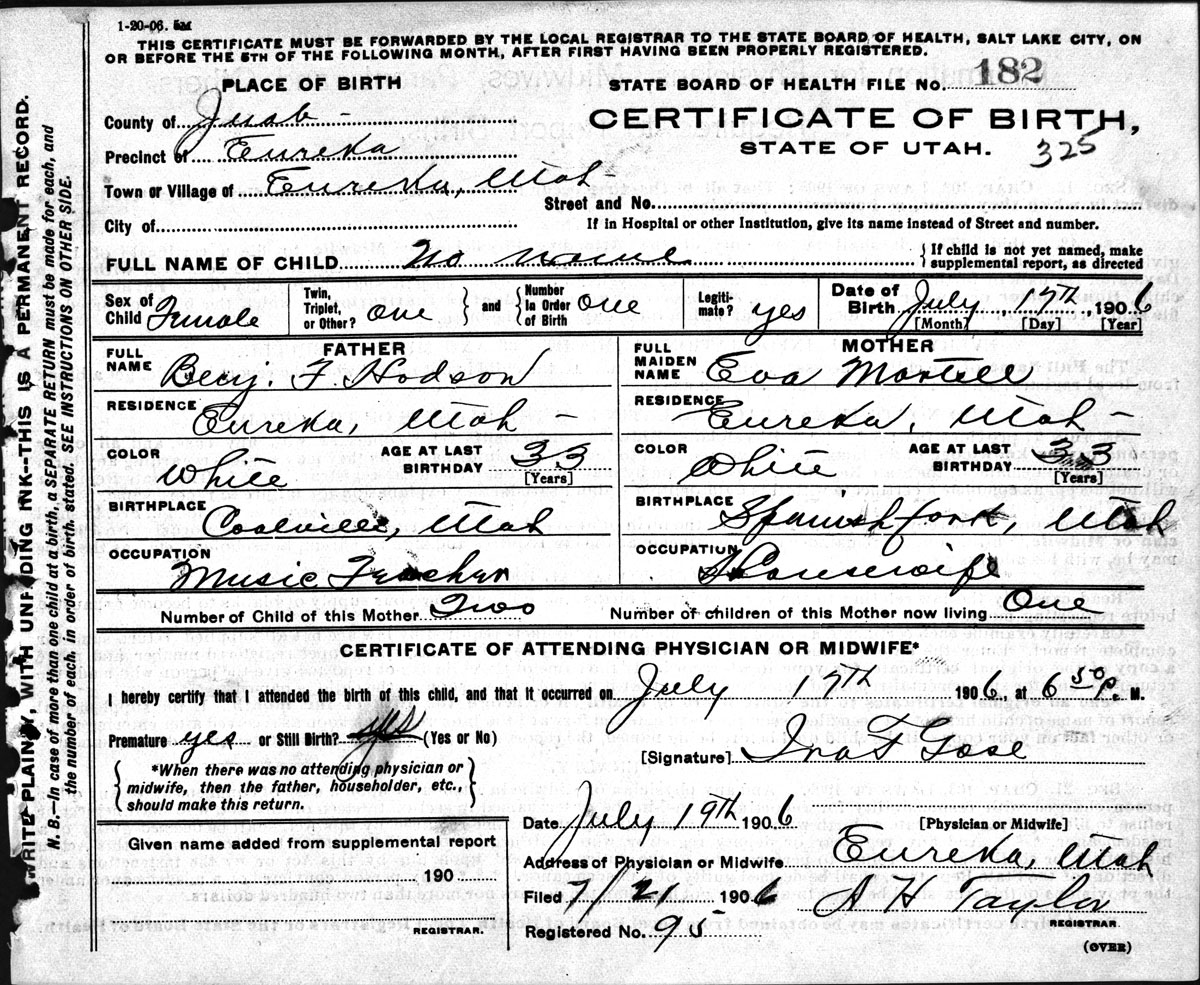 1-20-06. 5M
THIS CERTIFICATE MUST BE FORWARDED BY THE LOCAL REGISTRAR TO THE STATE BOARD OF HEALTH, SALT LAKE CITY, ON
OR BEFORE THE 5TH OF THE FOLLOWING MONTH, AFTER FIRST HAVING BEEN PROPERLY REGISTERED.
PLACE OF BIRTH
STATE BOARD OF HEALTH FILE No. 182
County of Juab
CERTIFICATE OF BIRTH,
Precinct of Eureka
STATE OF UTAH. 325
Town or Village of Eureka, Utah
Street and No.
City of
If in Hospital or other Institution, give its name instead of Street and number.
FULL NAME OF CHILD No name { If child is not yet named, make supplemental report, as directed
Sex of Child Female
Twin, Triplet, or Other? one } and { Number in Order of Birth one
Legitimate? yes
Date of Birth July, 17th, 1906
[Month] [Day] [Year]
FATHER
FULL NAME Benj. F. Hodson
RESIDENCE Eureka, Utah
COLOR White
AGE AT LAST BIRTHDAY 33
[Years]
BIRTHPLACE Coalville, Utah
OCCUPATION Music Teacher
MOTHER
FULL MAIDEN NAME Eva Martell
RESIDENCE Eureka, Utah
COLOR White
AGE AT LAST BIRTHDAY 33
[Years]
BIRTHPLACE Spanish fork, Utah
OCCUPATION Housewife
Number of Child of this Mother Two
Number of children of this Mother now living One
CERTIFICATE OF ATTENDING PHYSICIAN OR MIDWIFE*
I hereby certify that I attended the birth of this child, and that it occurred on July 17th 1906, at 6 50 P. M.
Premature yes or Still Birth? yes (Yes or No)
[Signature] Ira F Gose
{ *When there was no attending physician or
midwife, then the father, householder, etc.,
should make this return. }
Date July 19th 1906 [Physician or Midwife]
Given name added from supplemental report
190
REGISTRAR.
Address of Physician or Midwife Eureka, Utah
Filed 7/21 1906 A H Taylor
REGISTRAR.
Registered No. 95
(OVER)
WRITE PLAINLY, WITH UNFADING INK—THIS IS A PERMANENT RECORD.
N. B.—In case of more than one child at a birth, a SEPARATE RETURN must be made for each, and
the number of each, in order of birth, stated. SEE INSTRUCTIONS ON OTHER SIDE.